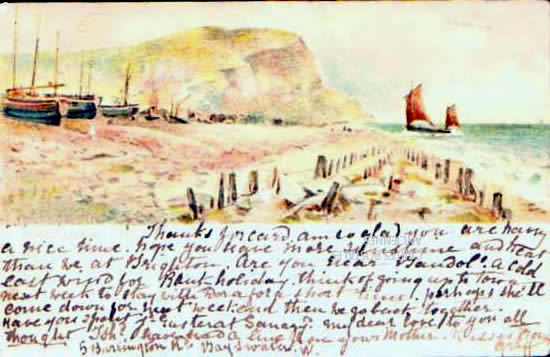 Thanks for p.card, am so glad you are having
a nice time. hope you have more sunshine and heat
than we at Brighton. Are you near "Bandol". A cold
east wind for Bank-holiday. think of going up to town
next week to stay with Dora for a short time. perhaps she'll
come down for next week end then we go back together.
Have you spent yr. Easter at Sanary. my dear love to you all
thought I have had a line from your Mother.
5 Burlington Rd. Bayswater. W.